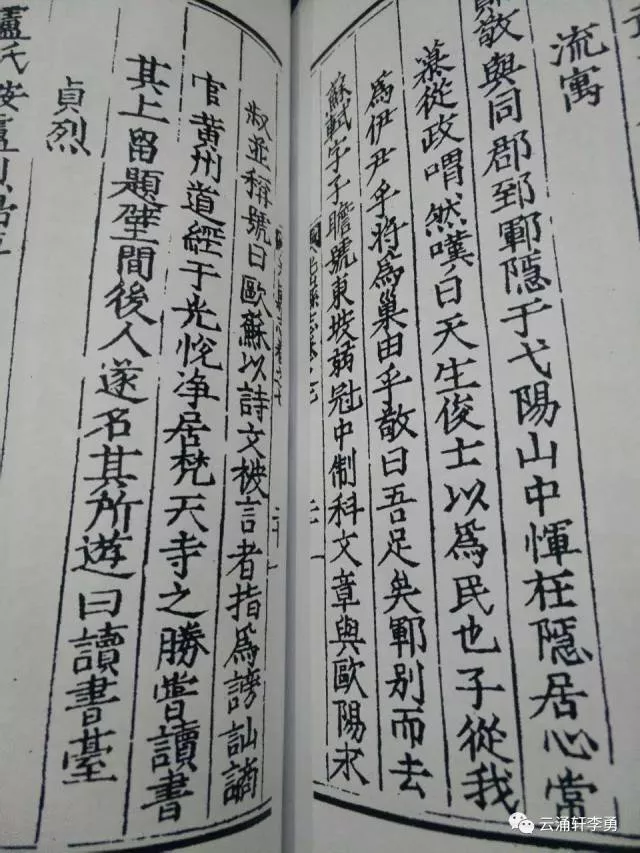 流寓
敬與同郡郅鄆隱于弋陽山中惲在隱居心常
慕從政喟然嘆曰天生俊士以爲民也子從我
爲伊尹乎將爲巢由乎敬曰吾足矣鄆別而去
蘇軾字子瞻號東坡弱冠中制科文章與歐陽永
叔並稱號曰歐蘇以詩文被言者指爲謗訕謫
官黄州道經于光悅净居梵天寺之勝嘗讀書
其上留題壁間後人遂名其所遊曰讀書臺
貞烈
盧氏
云涌轩李勇